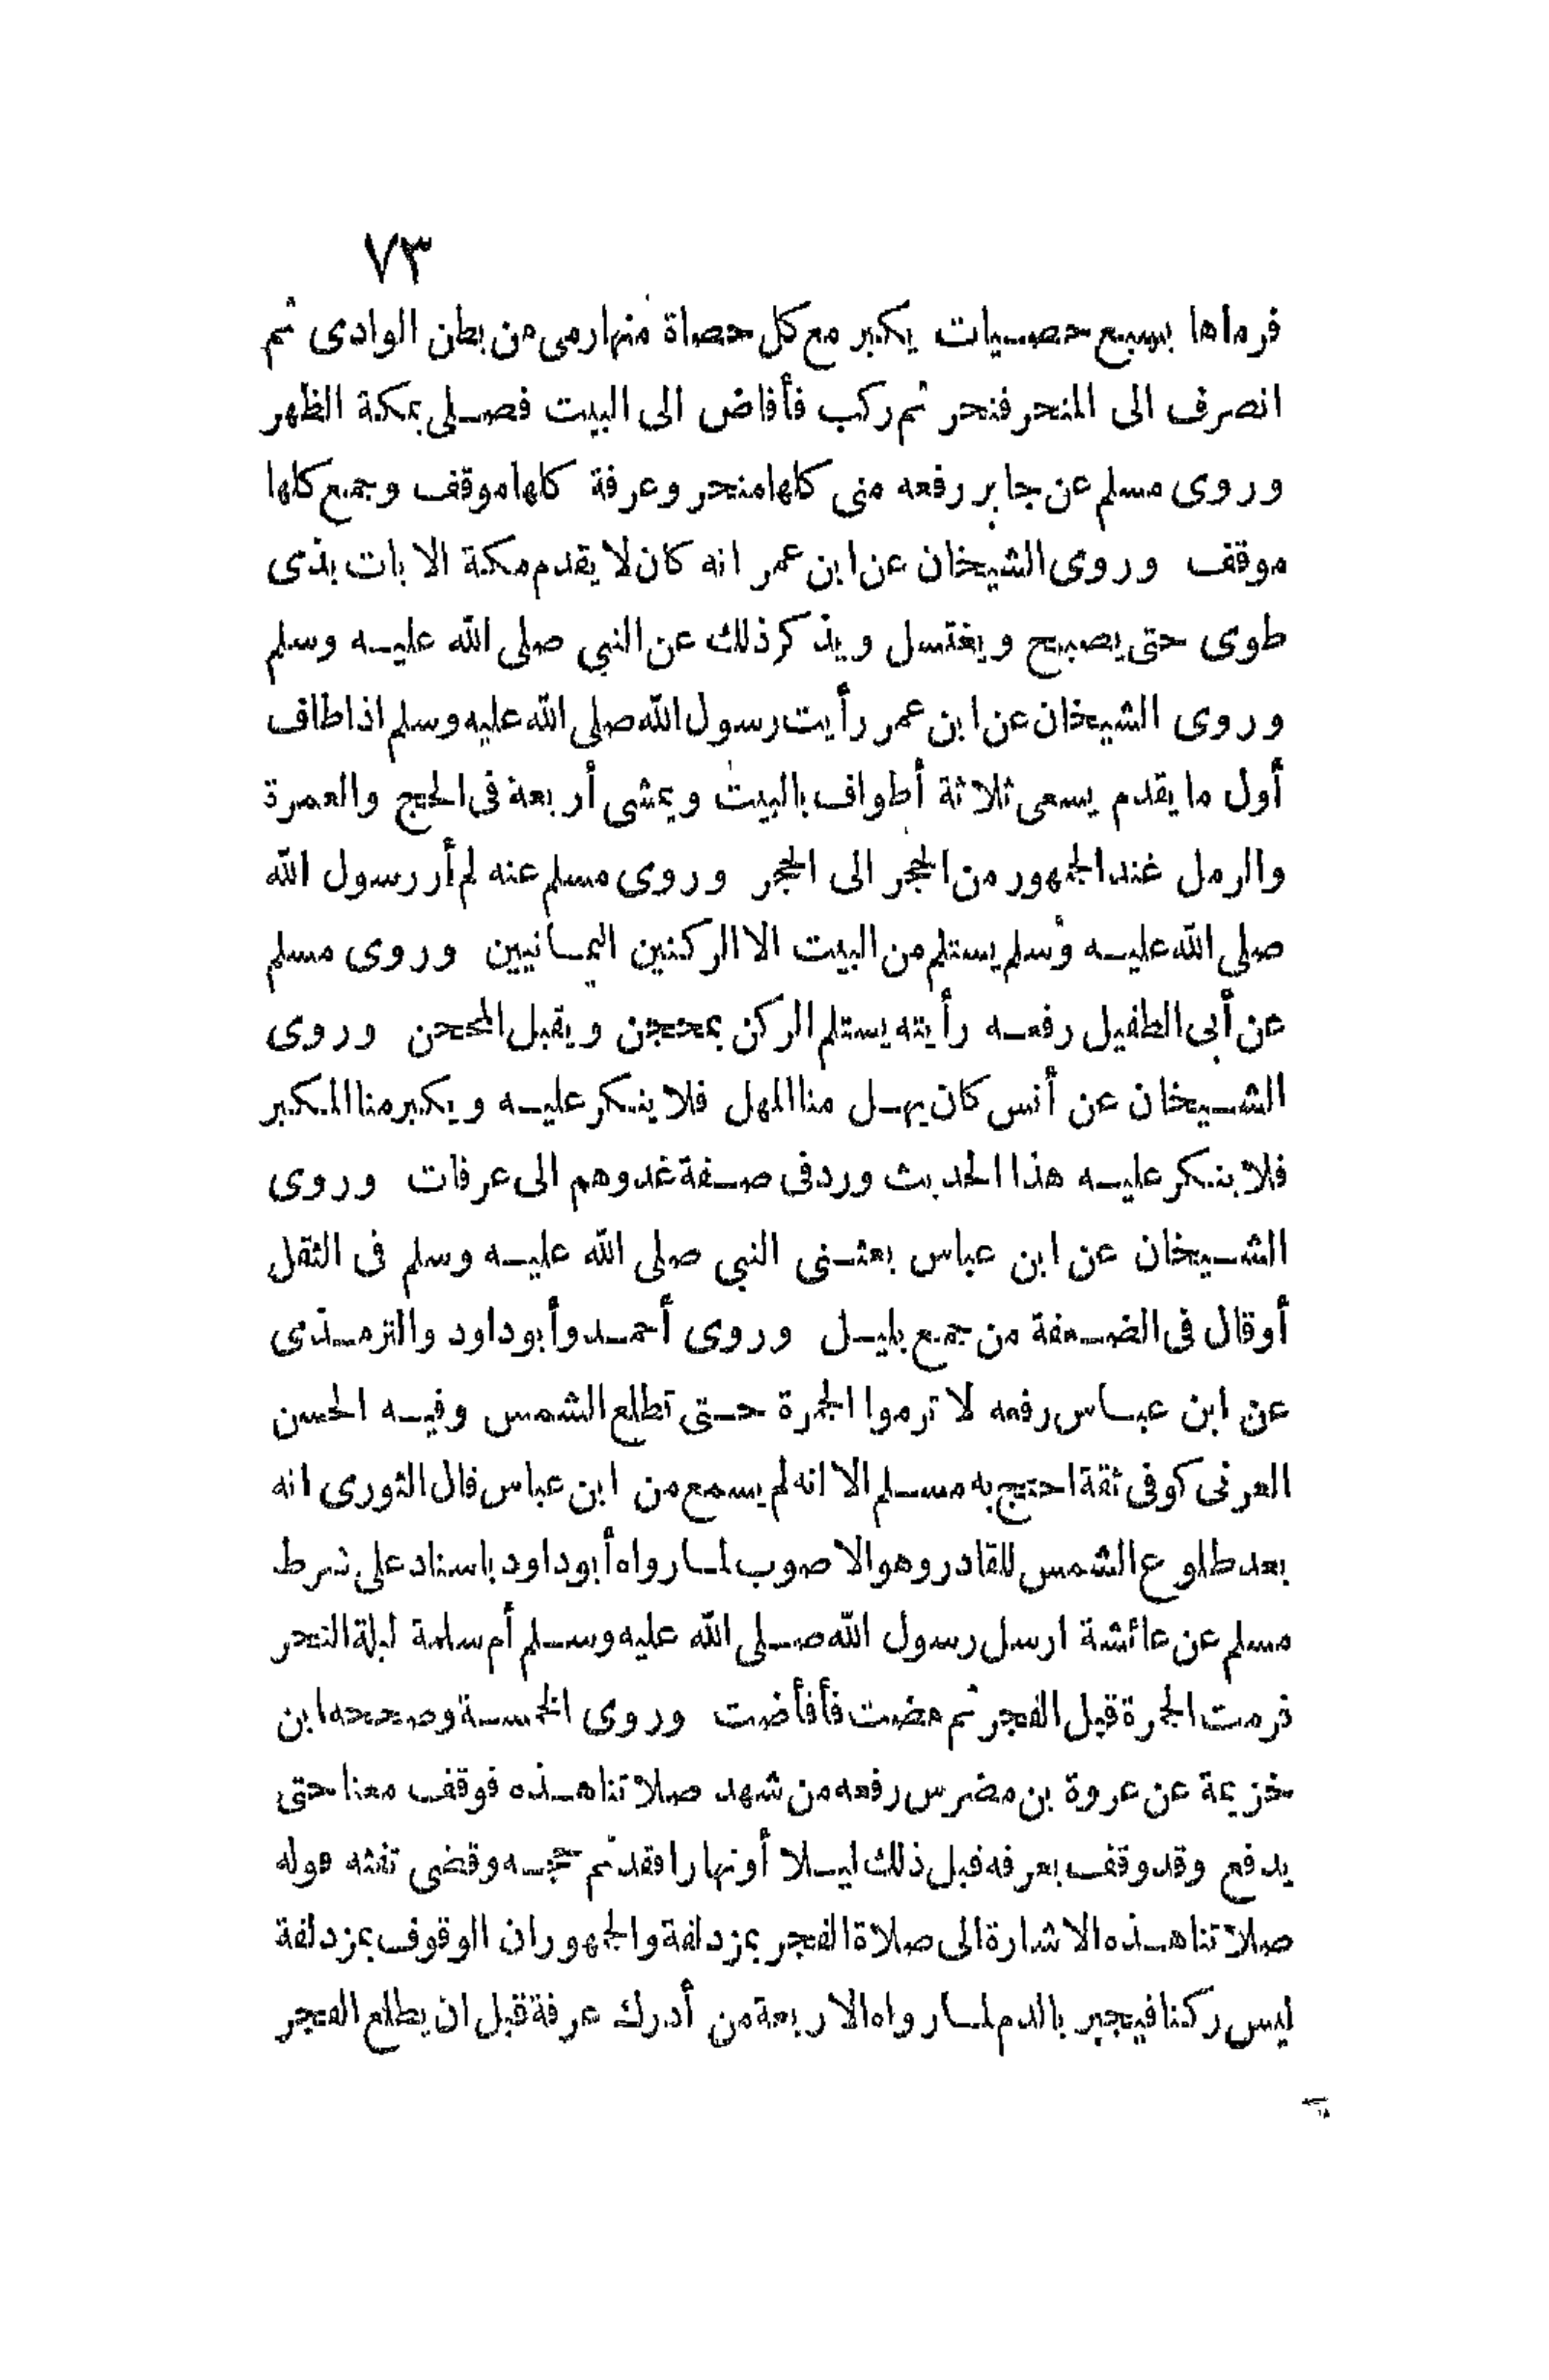 ٧٣
فرماها بسبع حصيات يكبر مع كل حصاة منها رمى من بطن الوادى ثم
انصرف الى المنحر فنحر ثم ركب فأفاض الى البيت فصلى بمكة الظهر
وروى مسلم عن جابر رفعه منى كلها منحر وعرفة كلها موقف وجمع كلها
موقف وروى الشيخان عن ابن عمر انه كان لا يقدم مكة الا بات بذى
طوى حتى يصبح ويغتسل ويذكر ذلك عن النبي صلى الله عليه وسلم
وروى الشيخان عن ابن عمر رأيت رسول الله صلى الله عليه وسلم اذا طاف
أول ما يقدم يسعى ثلاثة أطواف بالبيت ويمشى أربعة فى الحج والعمرة
والرمل عند الجمهور من الحجر الى الحجر وروى مسلم عنه لم أر رسول الله
صلى الله عليه وسلم يستلم من البيت الا الركنين اليمانيين وروى مسلم
عن أبى الطفيل رفعه رأيته يستلم الركن بمحجن ويقبل المحجن وروى
الشيخان عن أنس كان يهل منا المهل فلا ينكر عليه ويكبر منا المكبر
فلا ينكر عليه هذا الحديث ورد فى صفة غدوهم الى عرفات وروى
الشيخان عن ابن عباس بعثنى النبي صلى الله عليه وسلم فى الثقل
أو قال فى الضعفة من جمع بليل وروى أحمد وأبو داود والترمذى
عن ابن عباس رفعه لا ترموا الجمرة حتى تطلع الشمس وفيه الحسن
العرنى كوفى ثقة احتج به مسلم الا انه لم يسمع من ابن عباس قال الثورى انه
بعد طلوع الشمس للقادر وهو الاصوب لما رواه أبو داود باسناد على شرط
مسلم عن عائشة ارسل رسول الله صلى الله عليه وسلم أم سلمة ليلة النحر
فرمت الجمرة قبل الفجر ثم مضت فأفاضت وروى الخمسة وصححه ابن
خزيمة عن عروة بن مضرس رفعه من شهد صلاتنا هذه فوقف معنا حتى
يدفع وقد وقف بعرفه قبل ذلك ليلا أو نهارا فقد تم حجه وقضى تفثه قوله
صلاتنا هذه الاشارة الى صلاة الفجر بمزدلفة والجمهور ان الوقوف بمزدلفة
ليس ركنا فيجبر بالدم لما رواه الاربعة من أدرك عرفة قبل ان يطلع الفجر